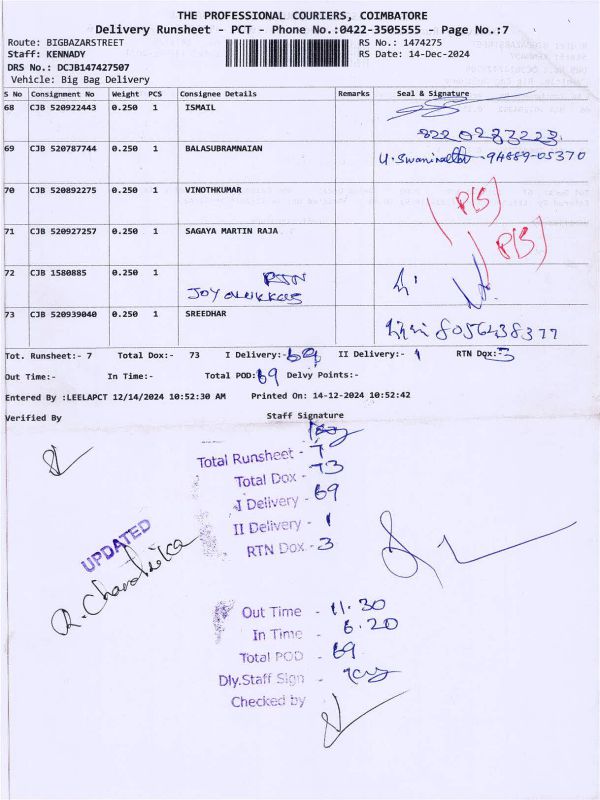 THE PROFESSIONAL COURIERS, COIMBATORE
Delivery Runsheet - PCT - Phone No.:0422-3505555 - Page No.:7
Route: BIGBAZARSTREET RS No.: 1474275
Staff: KENNADY RS Date: 14-Dec-2024
DRS No.: DCJB147427507
Vehicle: Big Bag Delivery
S No Consignment No Weight PCS Consignee Details Remarks Seal & Signature
68 CJB 520922443 0.250 1 ISMAIL
8220283223
69 CJB 520787744 0.250 1 BALASUBRAMNAIAN 94889-05370
70 CJB 520892275 0.250 1 VINOTHKUMAR P(S)
71 CJB 520927257 0.250 1 SAGAYA MARTIN RAJA P(S)
72 CJB 1580885 0.250 1 RTN
JOYALUKKAS
73 CJB 520939040 0.250 1 SREEDHAR 8056438377
Tot. Runsheet:- 7 Total Dox:- 73 I Delivery:- 69 II Delivery:- 1 RTN Dox:-3
Out Time:- In Time:- Total POD: 69 Delvy Points:-
Entered By :LEELAPCT 12/14/2024 10:52:30 AM Printed On: 14-12-2024 10:52:42
Verified By Staff Signature
Total Runsheet - 7
Total Dox - 73
I Delivery - 69
II Delivery - 1
RTN Dox - 3
UPDATED
R. Chandrika
Out Time - 11.30
In Time - 6.20
Total POD - 69
Dly.Staff Sign -
Checked by